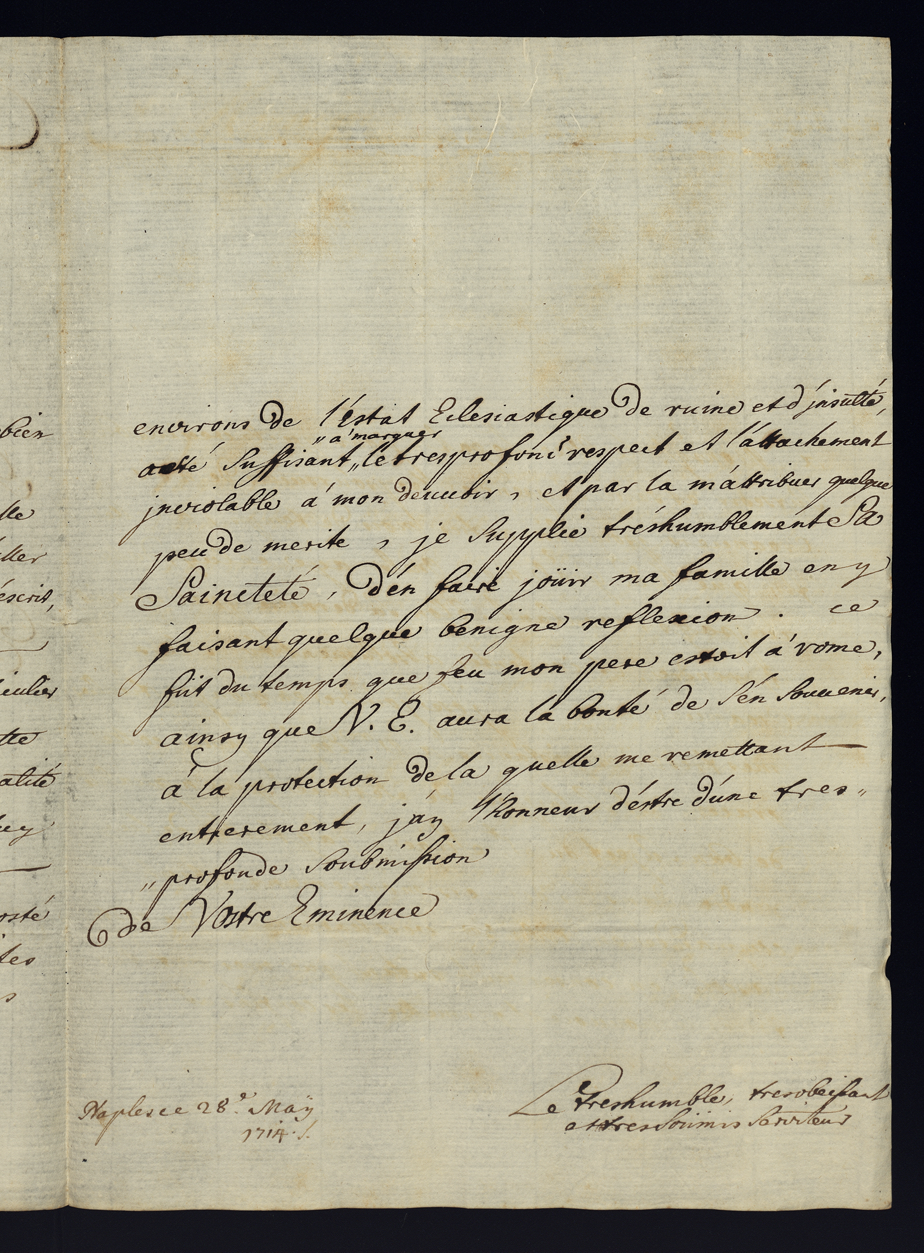 bien
environs de l'éstat Eclesiastique de ruine et d'jnsulté,
„ a' marquer
a esté suffisant „ le tresprofond respect et l'áttachement
jnviolable á mon devuoir, et par la m'áttribuer quelque
peu de merite, je supplie tréshumblement Sa
Saincteté, d'én faire joüir ma famille en y
faisant quelque benigne reflexion. ce
fut du temps que feu mon pere estoit á rome,
ainsy que V. E. aura la bonté de s'én souvenir,
á la protection de la quelle me remettant —
entierement, j'áy l'honneur d'éstre d'úne tres„
„profonde soubmission
de Vostre Eminence
Naples ce 28.e Maÿ
1714./.
Le treshumble, tresobeissant
et tres soümis serviteur